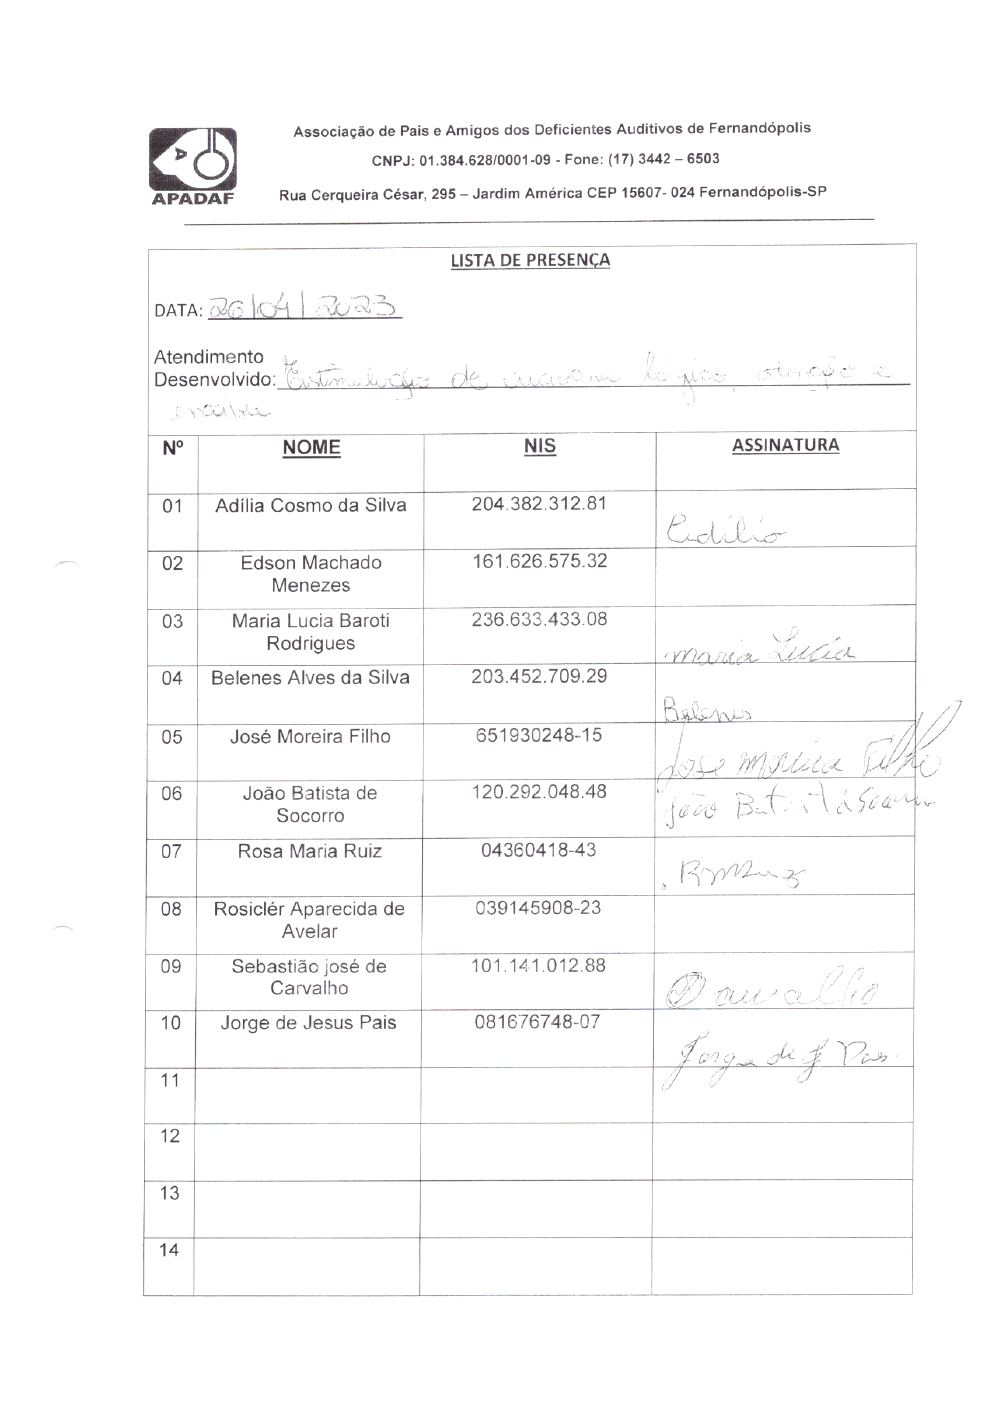 Associação de Pais e Amigos dos Deficientes Auditivos de Fernandópolis
CNPJ: 01.384.628/0001-09 - Fone: (17) 3442 – 6503
APADAF
Rua Cerqueira César, 295 – Jardim América CEP 15607- 024 Fernandópolis-SP
LISTA DE PRESENÇA
DATA: 20/04/2023
Atendimento
Desenvolvido: Estimulação de lógico, atenção e
Nº NOME NIS ASSINATURA
01 Adília Cosmo da Silva 204.382.312.81
02 Edson Machado 161.626.575.32
Menezes
03 Maria Lucia Baroti 236.633.433.08
Rodrigues maria Lucia
04 Belenes Alves da Silva 203.452.709.29
Belenes
05 José Moreira Filho 651930248-15
Jose Moreira Filho
06 João Batista de 120.292.048.48 João Batista
Socorro
07 Rosa Maria Ruiz 04360418-43
08 Rosiclér Aparecida de 039145908-23
Avelar
09 Sebastião josé de 101.141.012.88
Carvalho
10 Jorge de Jesus Pais 081676748-07
Jorge de J Pais
11
12
13
14